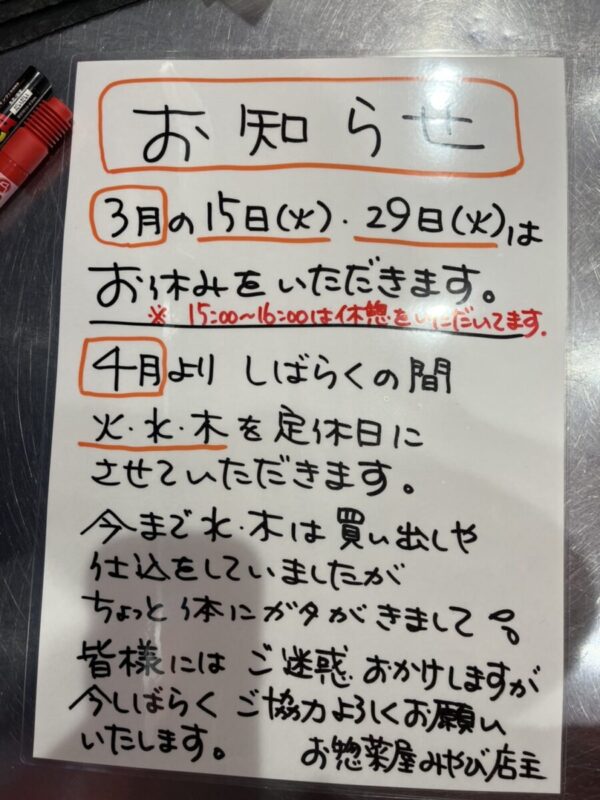 お知らせ
3月の15日(火)・29日(火)は
お休みをいただきます。
※ 15:00〜16:00は休憩をいただいてます.
4月より しばらくの間
火・水・木を定休日に
させていただきます。
今まで水・木は買い出しや
仕込をしていましたが
ちょっと体にガタがきまして
皆様には ご迷惑 おかけしますが
今しばらく ご協力よろしくお願い
いたします。 お惣菜屋みやび店主